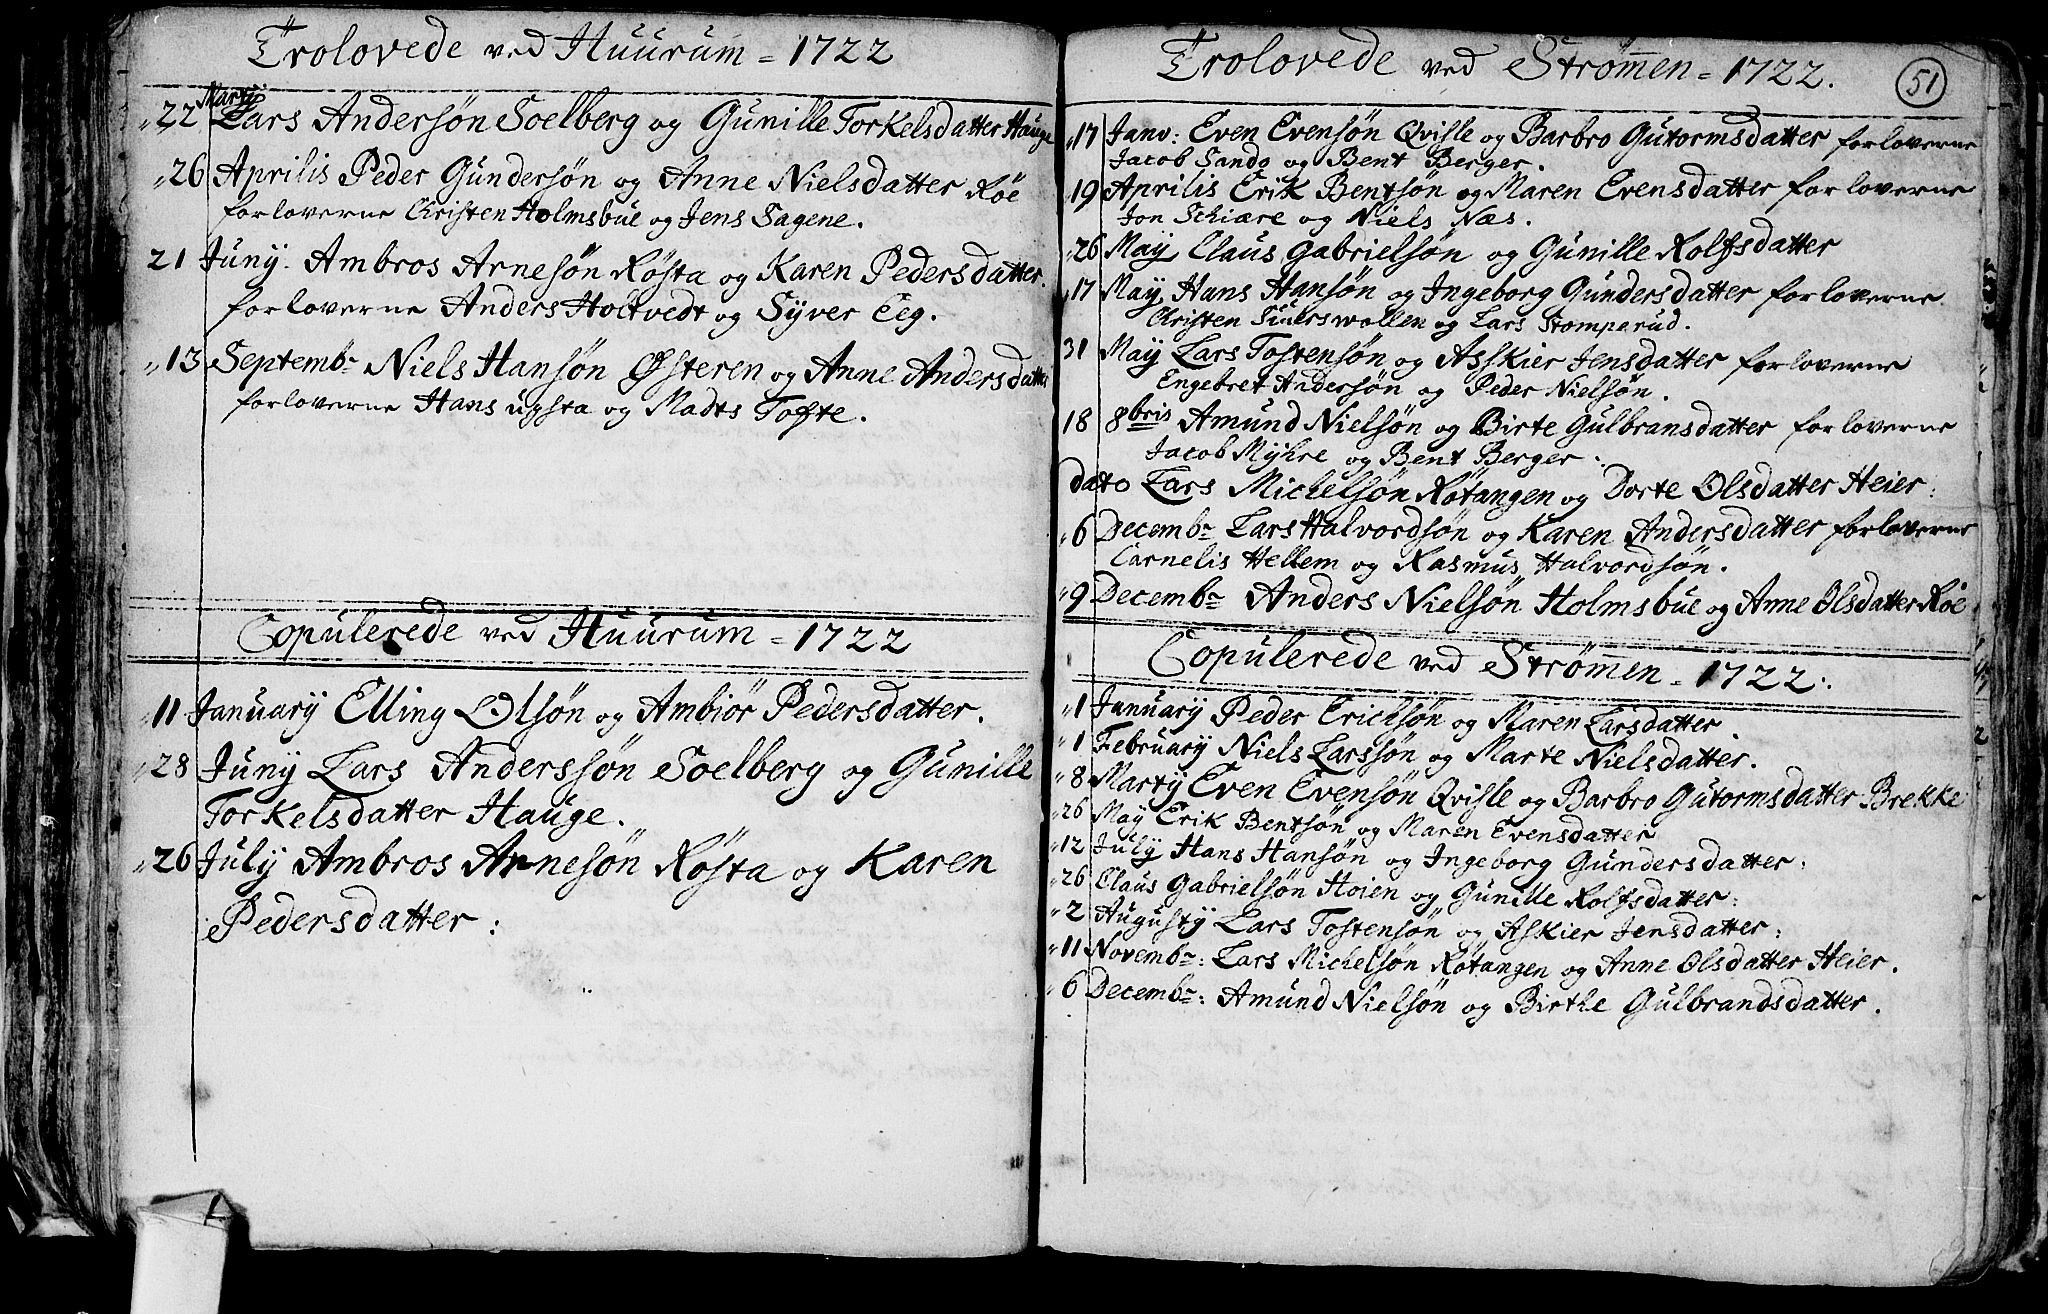 Trolovede ved Huurum = 1722
Marty
22 Lars Andersøn Soelberg og Gunille Torkelsdatter Hauge
26 Aprilis Peder Gundersøn og Anne Nielsdatter Røe
forloverne Christen Holmsbue og Jens Sagene.
21 Juny. Ambros Arnesøn Røsta og Karen Pedersdatter.
forloverne Anders Holtvedt og Syver Eeg.
13 Septembr Niels Hansøn Østeren og Anne Andersdatter
forloverne Hans upsta og Madts Tofte.
Copulerede ved Huurum = 1722
11 January Elling Olsøn og Ambiør Pedersdatter.
28 Juny Lars Anderssøn Soelberg og Gunille
Torkelsdatter Hauge.
26 July Ambros Arnesøn Røsta og Karen
Pedersdatter:
Trolovede ved Strømen = 1722.
51
17 Janv: Even Evensøn Qvisle og Barbro Gutormsdatter forloverne
Jacob Sando og Bent Berger.
19 Aprilis Erik Bentsøn og Maren Evensdatter forloverne
Jon Schiære og Niels Næs.
26 May Claus Gabrielsøn og Gunille Rolfsdatter
17 May Hans Hansøn og Ingeborg Gundersdatter forloverne
Christen Siverswollen og Lars Stomperud.
31 May Lars Tostensøn og Asskier Jensdatter forloverne
Engebret Andersøn og Peder Nielsøn.
18 8bris Amund Nielsøn og Birte Gulbransdatter forloverne
Jacob Myhre og Bent Berger:
dato Lars Michelsøn Røtangen og Dorte Olsdatter Heier:
6 Decembr Lars Halvordsøn og Karen Andersdatter forloverne
Carnelis Hellem og Rasmus Halvordsøn.
9 Decembr Anders Nielsøn Holmsbue og Anne Olsdatter Røe
Copulerede ved Strømen = 1722:.
1 January Peder Erichsøn og Maren Larsdatter.
1 February Niels Larssøn og Marte Nielsdatter.
8 Marty Even Evensøn Qvisle og Barbro Gutormsdatter Brekke
26 May Erik Bentsøn og Maren Evensdatter
12 July Hans Hansøn og Ingeborg Gundersdatter:
26 Claus Gabrielsøn Hoien og Gunille Rolfsdatter:
2 Augusty Lars Tostensøn og Askier Jensdatter:
11 Novembr: Lars Michelsøn Røtangen og Anne Olsdatter Heier.
6 Decembr: Amund Nielsøn og Birthe Gulbrandsdatter.